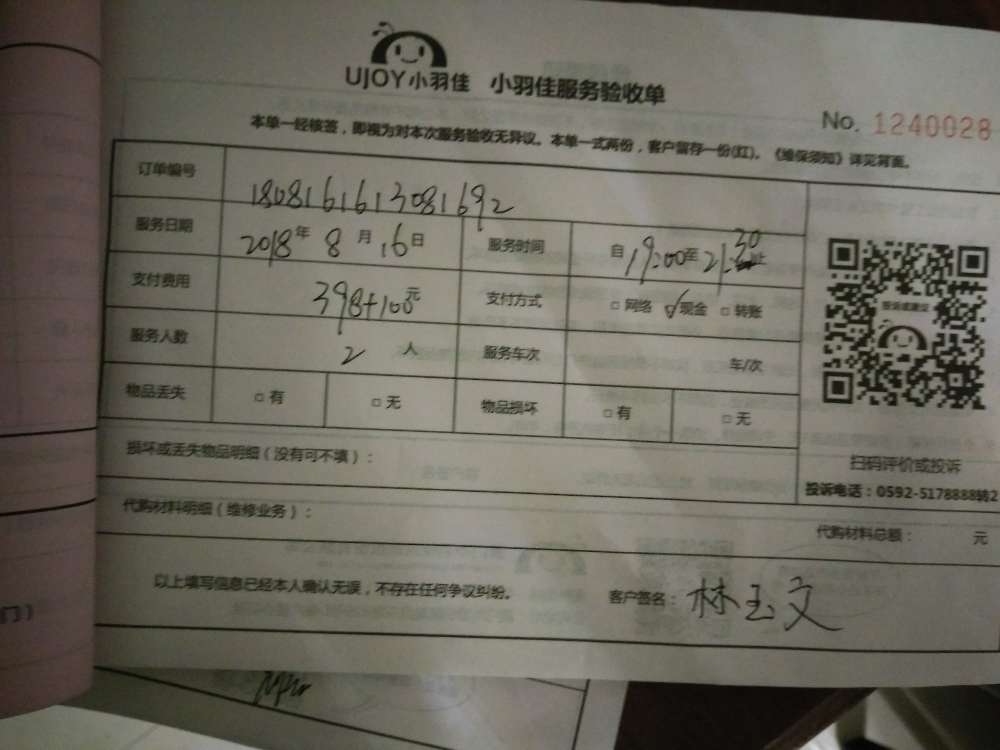 UJOY小羽佳 小羽佳服务验收单
No. 1240028
本单一经核签，即视为对本次服务验收无异议。本单一式两份，客户留存一份(红)。《维保须知》详见背面。
订单编号 1808161613081692
服务日期 2018年 8月 16日 服务时间 自19:00至21:30止
支付费用 398+100元 支付方式 □网络 ☑现金 □转账
服务人数 2人 服务车次 车/次
物品丢失 □有 □无 物品损坏 □有 □无
投诉或建议
扫码评价或投诉
投诉电话：0592-5178888转2
损坏或丢失物品明细（没有可不填）：
代购材料明细（维修业务）： 代购材料总额： 元
以上填写信息已经本人确认无误，不存在任何争议纠纷。 客户签名：林玉文
门）